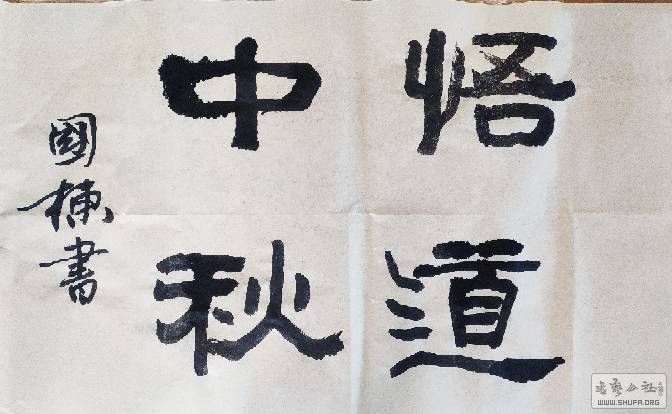 悟道
中秋
國棟書
書藝公社
WWW.SHUFA.ORG